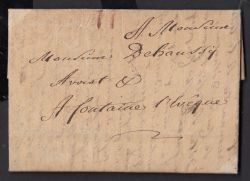 A Monsieur
Monsieur Dehaussy
Avocat &
A fontaine l'Evêque